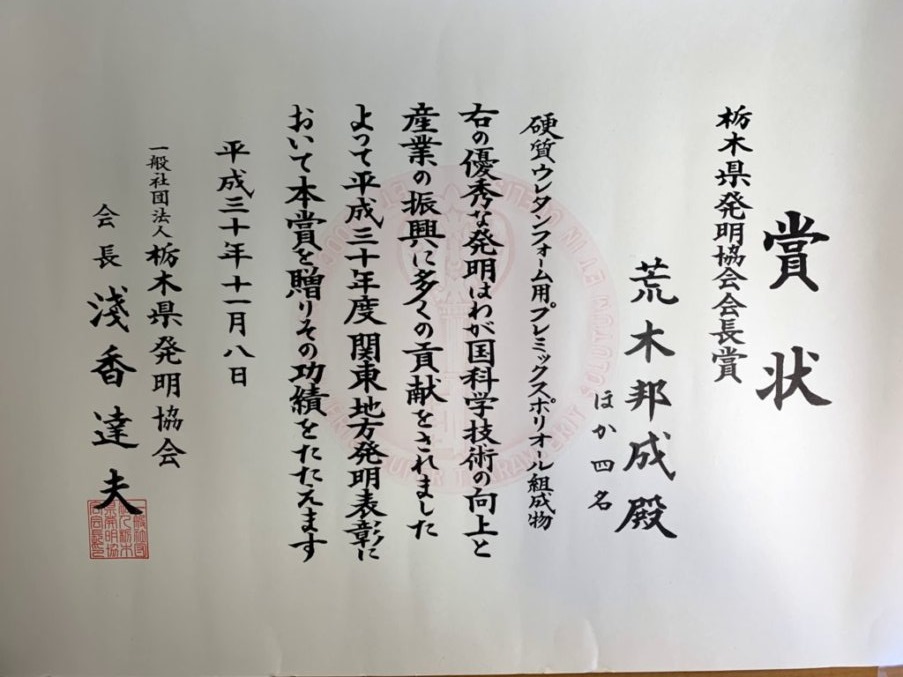 賞状
栃木県発明協会会長賞
荒木邦成殿
ほか四名
硬質ウレタンフォーム用プレミックスポリオール組成物
右の優秀な発明はわが国科学技術の向上と
産業の振興に多くの貢献をされました
よって平成三十年度関東地方発明表彰に
おいて本賞を贈りその功績をたたえます
平成三十年十一月八日
一般社団法人栃木県発明協会
会長 淺香達夫